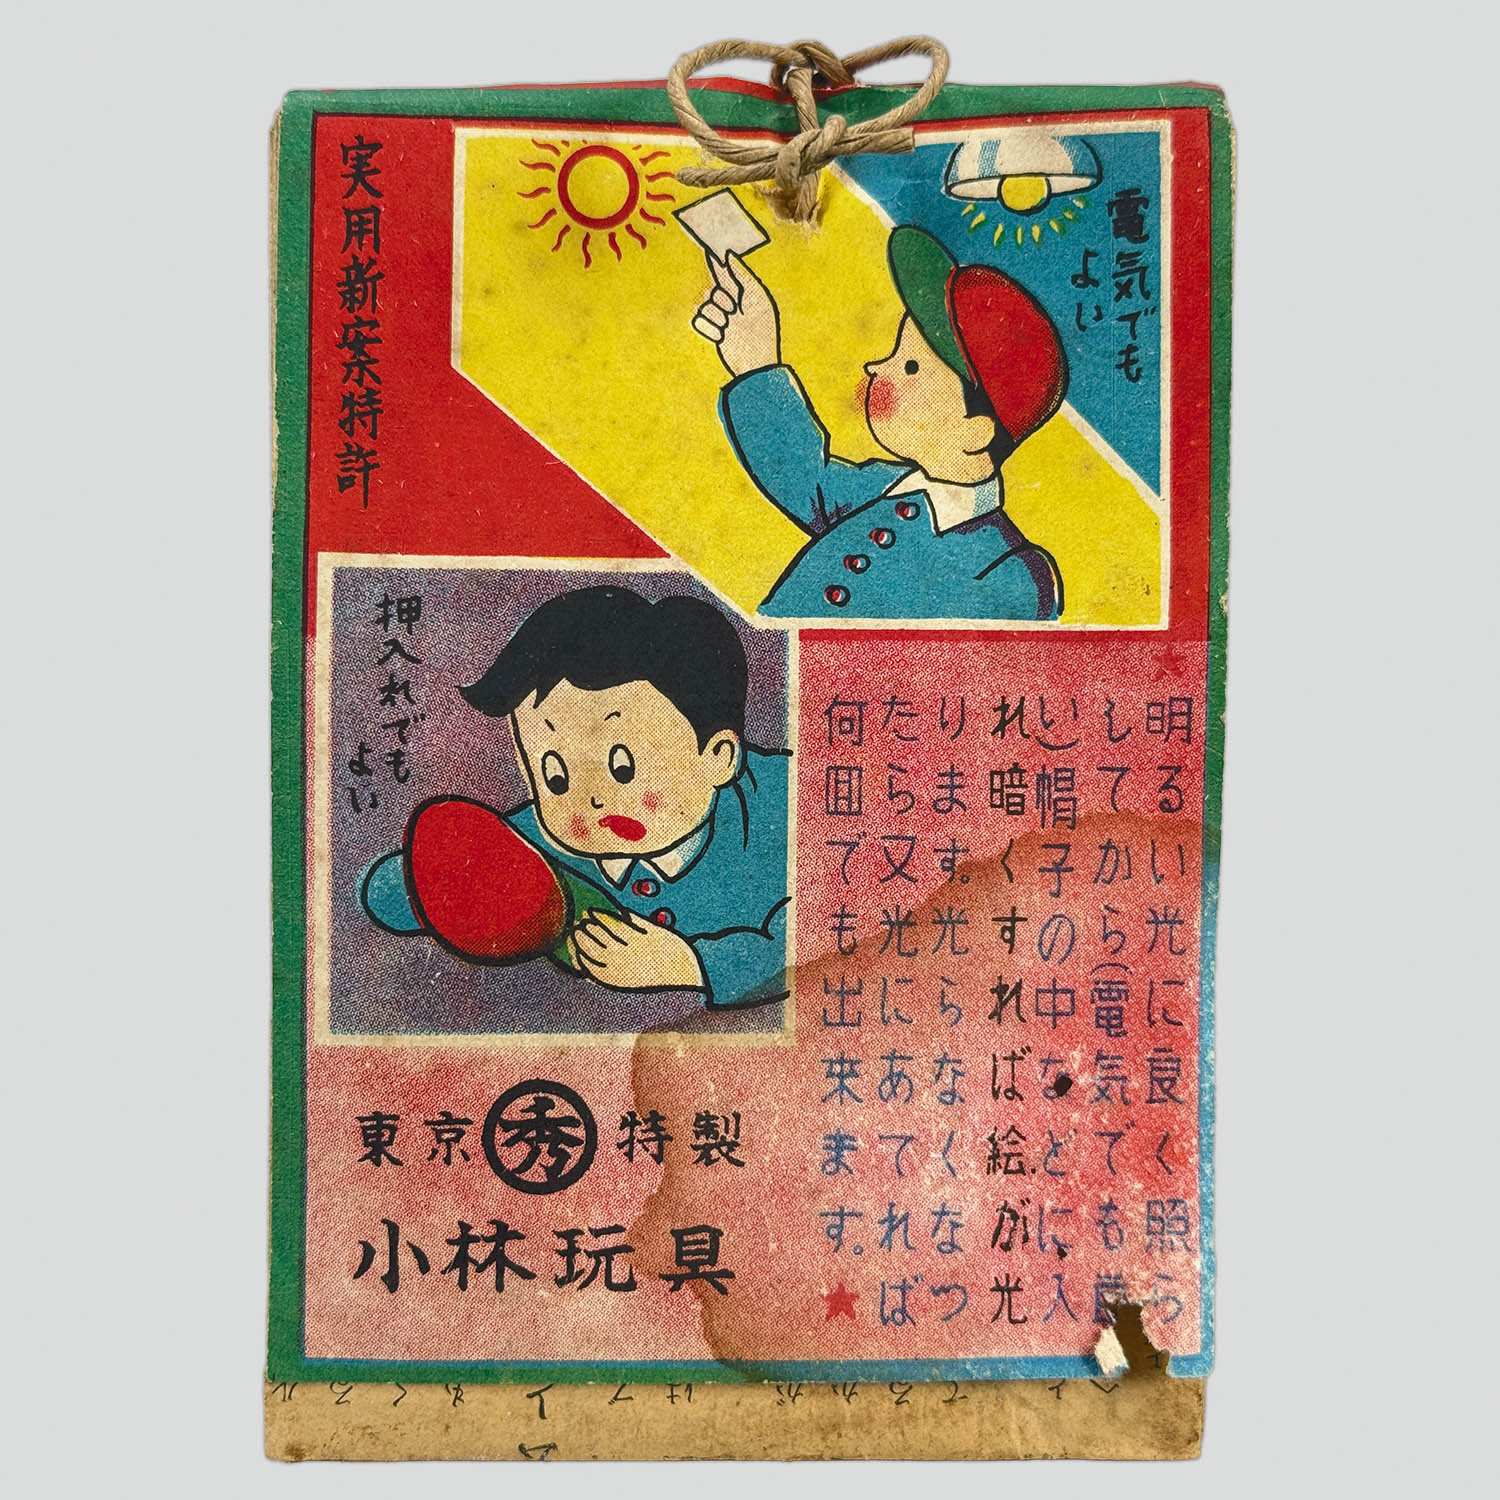 実用新案特許
電気でも
よい
押入れでも
よい
★明るい光に良く照ら
してから(電気でも良
い)帽子の中などに入
れ暗くすれば絵が光
ります。光らなくなつ
たら又光にあてれば
何回でも出来ます。★
東京 秀 特製
小林玩具